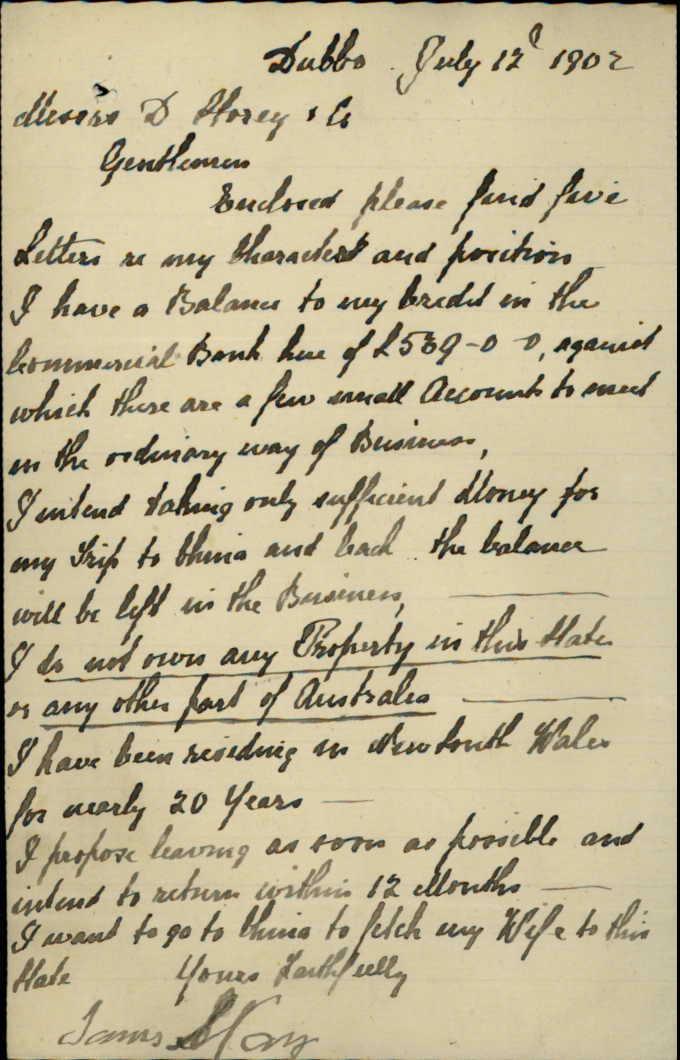 Dubbo July 12 1902
Messrs D Storey & Co
Gentlemen
Enclosed please find five
Letters re my Character and position
I have a Balance to my Credit in the
Commercial Bank here of £539-0-0, against
which there are a few small Accounts to meet
in the ordinary way of Business,
I intend taking only sufficient Money for
my Trip to China and back the balance
will be left in the Business,
I do not own any Property in this State
or any other part of Australia
I have been residing in New South Wales
for nearly 20 Years —
I propose leaving as soon as possible and
intend to return within 12 Months —
I want to go to China to fetch my Wife to this
State Yours Faithfully